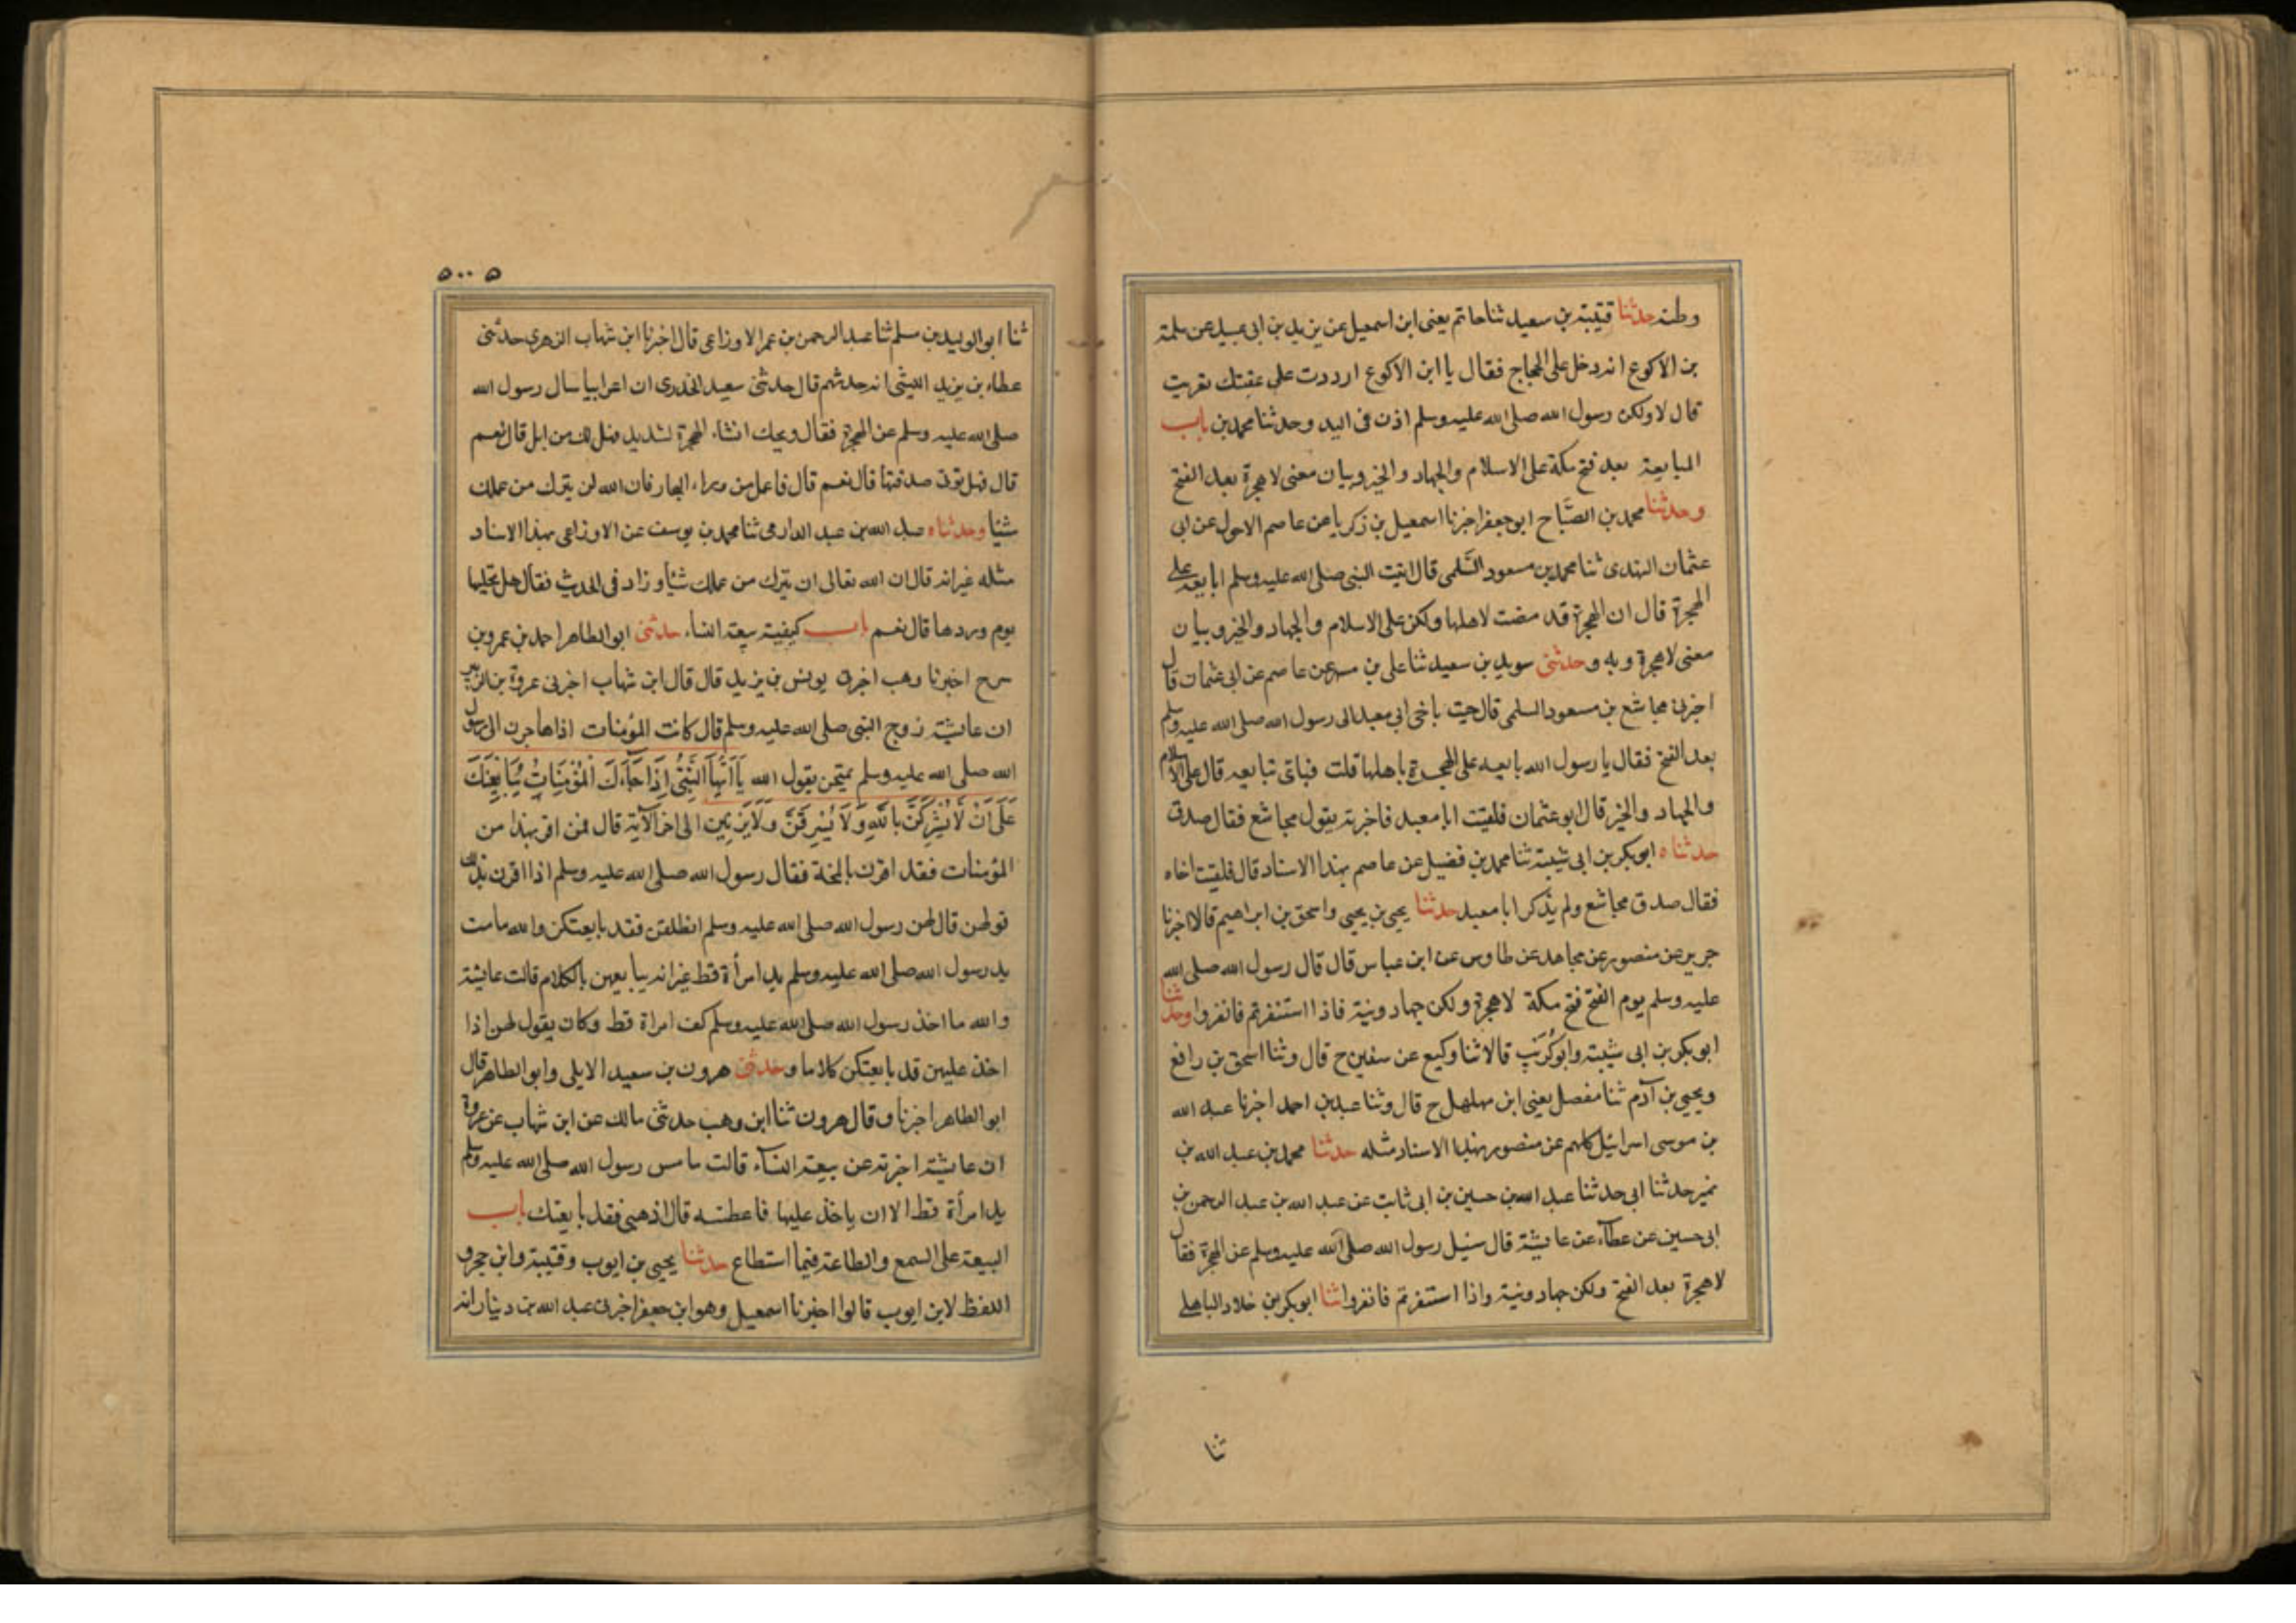 وطنه حدثنا قتيبة بن سعيد ثنا حاتم يعنى ابن اسمعيل عن يزيد بن ابى عبيد عن سلمة
بن الاكوع انه دخل على الحجاج فقال يا ابن الاكوع ارددت على عقبتك تعربت
قال لا ولكن رسول الله صلى الله عليه وسلم اذن فى البد وحدثنا محمد بن باب
المبايعة بعد فتح مكة على الاسلام والجهاد والخير وبيان معنى لا هجرة بعد الفتح
وحدثنا محمد بن الصَّباح ابو جعفر اخبرنا اسمعيل بن زكريا عن عاصم الاحول عن ابى
عثمان النهدى ثنا محمد بن مسعود السَّلمى قال اتيت النبى صلى الله عليه وسلم ابايعه على
الهجرة قال ان الهجرة قد مضت لاهلها ولكن على الاسلام والجهاد والخير وبيان
معنى لا هجرة وبه وحدثنى سويد بن سعيد ثنا على بن مسهر عن عاصم عن ابى عثمان قال
اخبرنى مجاشع بن مسعود السلمى قال جيت باخى ابى معبد الى رسول الله صلى الله عليه وسلم
بعد الفتح فقال يا رسول الله بايعه على الهجرة باهلها قلت فباى تبايعه قال على الاسلام
والجهاد والخير قال ابو عثمان فلقيت ابا معبد فاخبرته بقول مجاشع فقال صدق
حدثناه ابو بكر بن ابى شيبة ثنا محمد بن فضيل عن عاصم بهذا الاسناد قال فلقيت اخاه
فقال صدق مجاشع ولم يذكر ابا معبد حدثنا يحيى بن يحيى واسحق بن ابراهيم قالا اخبرنا
جرير عن منصور عن مجاهد عن طاوس عن ابن عباس قال قال رسول الله صلى الله
عليه وسلم يوم الفتح فتح مكة لا هجرة ولكن جهاد ونية فاذا استنفرتم فانفروا وحدثنا
ابو بكر بن ابى شيبة وابو كُرَيب قالا ثنا وكيع عن سفين ح قال وثنا اسحق بن رافع
ويحيى بن آدم ثنا مفصل يعنى ابن مهلهل ح قال وثنا عبد بن احمد اخبرنا عبد الله
بن موسى اسرائيل كلهم عن منصور بهذا الاسناد مثله حدثنا محمد بن عبد الله بن
نمير حدثنا ابى حدثنا عبد الله بن حسين بن ابى ثابت عن عبد الله بن عبد الرحمن بن
ابى حسين عن عطآء عن عايشة قال سئيل رسول الله صلى الله عليه وسلم عن الهجرة فقال
لا هجرة بعد الفتح ولكن جهاد ونية واذا استنفرتم فانفروا ثنا ابو بكر بن خلاد الباهلى
ثنا
٥٠٠٥
ثنا ابو الوليد بن مسلم ثنا عبد الرحمن بن عمر الاوزاعى قال اخبرنا ابن شهاب الزهري حدثنى
عطاء بن يزيد الليثى انه حدثهم قال حدثنى سعيد الخدرى ان اعرابيا سال رسول الله
صلى الله عليه وسلم عن الهجرة فقال ويحك انشاء الهجرة لشديد فهل لك من ابل قال نعم
قال فهل توتى صدقتها قال نعم قال فاعمل من وراء البحار فان الله لن يترك من عملك
شيًا وحدثناه عبد الله بن عبد الدارمى ثنا محمد بن يوسف عن الاوزاعى بهذا الاسناد
مثله غير انه قال ان الله تعالى ان يترك من عملك شيًا وزاد فى الحديث فقال هل تحلبها
يوم وردها قال نعم باب كيفية بيعة النساء حدثنى ابو الطاهر احمد بن عمرو بن
سرح اخبرنا وهب اخبرنى يونس بن يزيد قال قال ابن شهاب اخبرنى عروة بن الزبير
ان عايشة زوج النبى صلى الله عليه وسلم قال كانت المؤمنات اذا هاجرن الى رسول
الله صلى الله عليه وسلم يمتحن بقول الله يَآ اَيُّهَا النَّبِىُّ اِذَا جَآءَكَ الْمُؤْمِنَاتُ يُبَايِعْنَكَ
عَلَى اَنْ لَا يُشْرِكْنَ بِاللّٰهِ وَلَا يَسْرِقْنَ وَلَا يَزْنِينَ الى اخر الآية قال فمن اقر بهذا من
المؤمنات فقد اقرت بالمحنة فقال رسول الله صلى الله عليه وسلم اذا اقرن بذلك
قولهن قال لهن رسول الله صلى الله عليه وسلم انطلقن فقد بايعتكن والله ما مست
يد رسول الله صلى الله عليه وسلم يد امرأة قط غير انه يبايعهن بالكلام قالت عايشة
والله ما اخذ رسول الله صلى الله عليه وسلم كف امراة قط وكان يقول لهن اذا
اخذ عليهن قد بايعتكن كلاما وحدثنى هرون بن سعيد الايلى وابو الطاهر قال
ابو الطاهر اخبرنا وقال هرون ثنا ابن وهب حدثنى مالك عن ابن شهاب عن عروة
ان عايشة اخبرته عن بيعة النسآء قالت ما مس رسول الله صلى الله عليه وسلم
يد امرأة قط الا ان ياخذ عليها فاعطته قال اذهبى فقد بايعتك باب
البيعة على السمع والطاعة فيما استطاع حدثنا يحيى بن ايوب وقتيبة وابن حجر و
اللفظ لابن ايوب قالوا اخبرنا اسمعيل وهو ابن جعفر اخبرنى عبد الله بن دينار انه